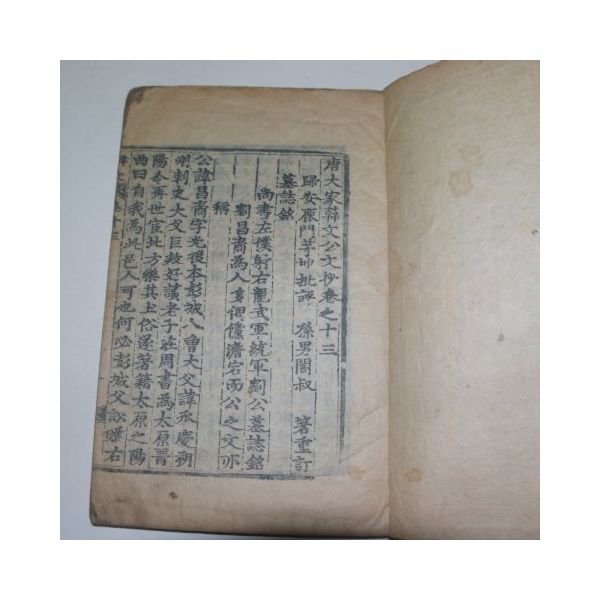 唐大家韓文公文抄卷之十三
歸安鹿門茅坤批評 孫男闇叔 著重訂
墓誌銘
尚書左僕射右龍武軍統軍劉公墓誌銘
劉昌裔為人多倜儻瀟宕而公之文亦
稱
公諱昌裔字光後本彭城人曾大父諱承慶朔
州刺史大父巨敖好讀老子莊周書為太原晉
陽令再世宦北方樂其土俗遂著籍太原之陽
曲曰自我為此邑人可也何必彭城父訟贈右